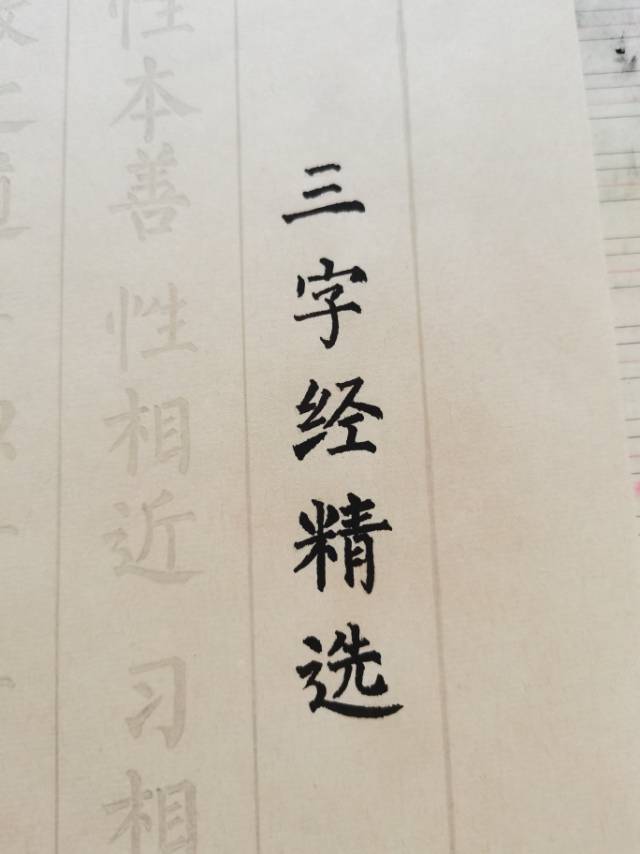 三字经精选
性本善 性相近 习相